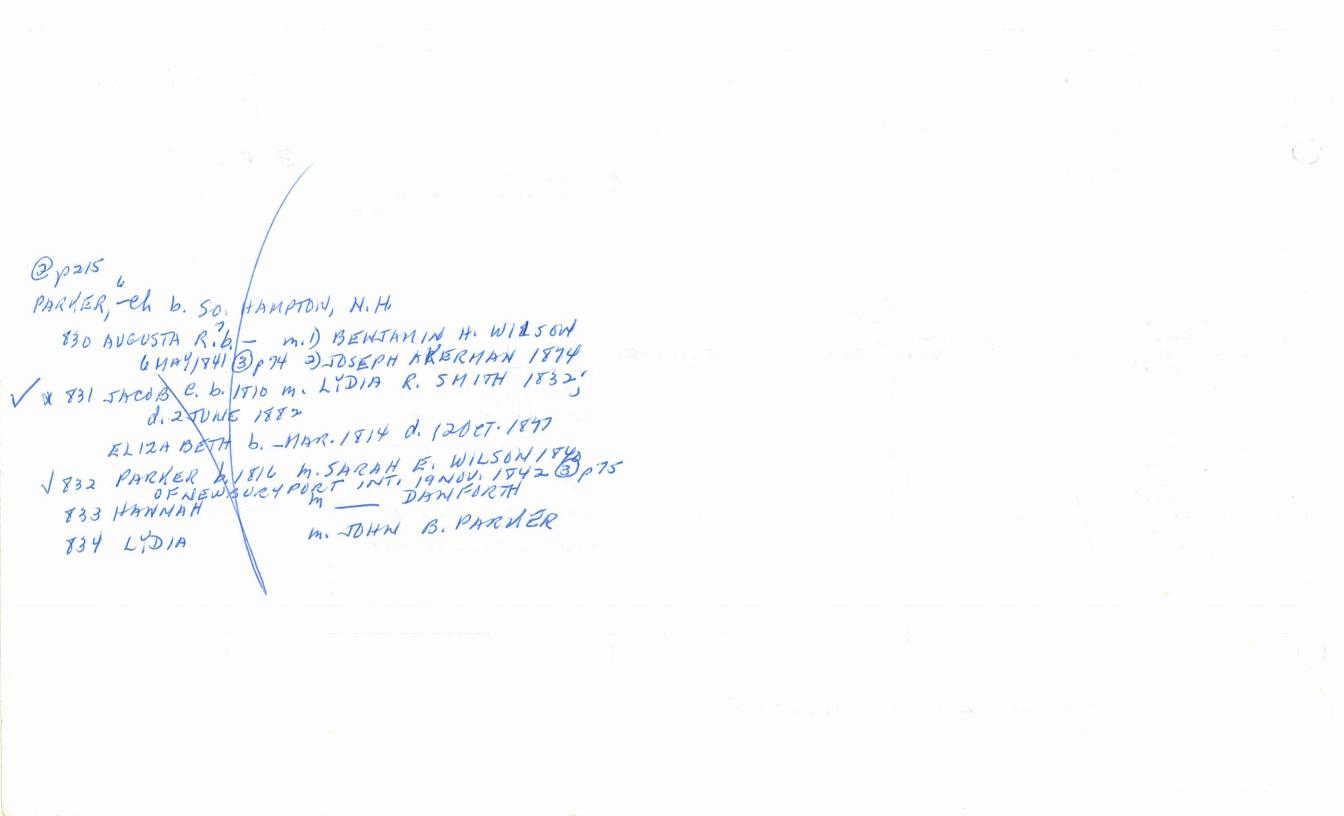 ② p215
PARKER,⁶ -ch b. So. HAMPTON, N.H.
830 AUGUSTA R.⁷ b. — m. 1) BENJAMIN H. WILSON
6 MAY, 1841 ③ p74 2) JOSEPH AKERMAN 1874
✓ * 831 JACOB C. b. 1810 m. LYDIA R. SMITH 1832;
d. 2 JUNE 1882
ELIZABETH b. – MAR. 1814 d. 12 OCT. 1897
✓ 832 PARKER b. 1816 m. SARAH E. WILSON
OF NEWBURYPORT INT. 19 NOV. 1842 ③ p75
833 HANNAH m —— DANFORTH
834 LYDIA m. JOHN B. PARKER